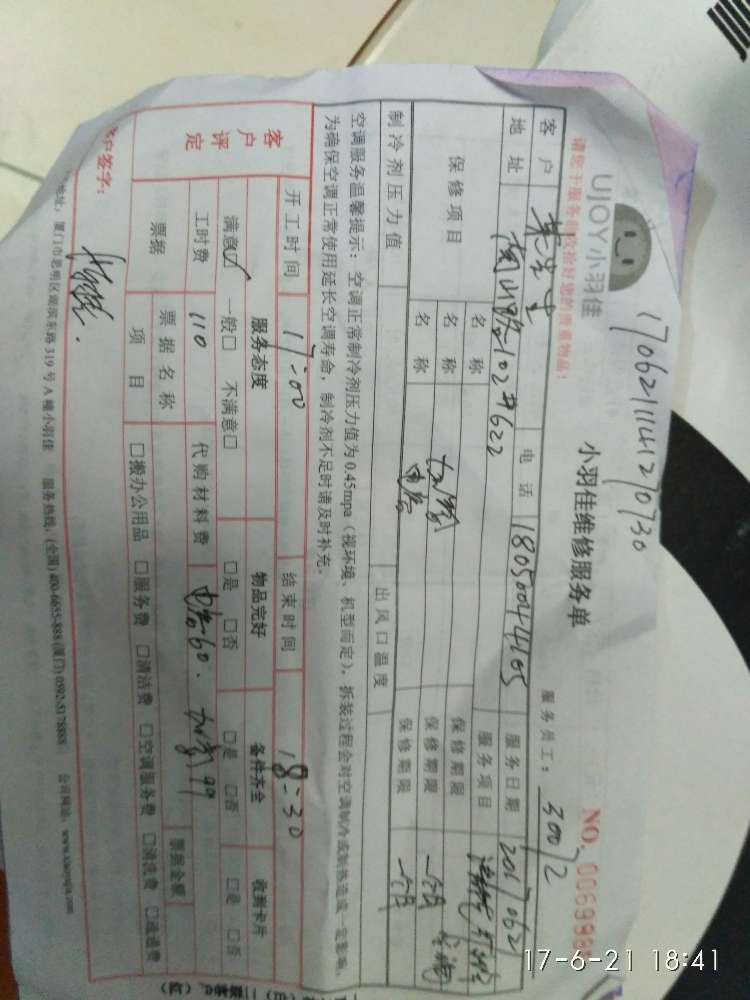 170621114120730
UJOY小羽佳
请您于服务前收拾好您的贵重物品!
小羽佳维修服务单
服务员工: 30072
NO.
客户
电话 18050044605
服务日期 20170621
地址
服务项目
保修项目
名称
保修期限
名称 加氟
保修期限 一个月
名称 电容
保修期限 一个月
制冷剂压力值
出风口温度
空调服务温馨提示:空调正常制冷剂压力值为0.45mpa(视环境、机型而定),拆装过程会对空调制冷或制热造成一定影响,
为确保空调正常使用延长空调寿命,制冷剂不足时请及时补充。
开工时间 17:00
结束时间 18:30
客户评定
服务态度
物品完好
备件齐全
收到卡片
满意☑ 一般□ 不满意□
□是 □否
□是 □否
□是 □否
工时费 110
代购材料费 电容60. 加氟99
票据
票据名称
票据金额
项目
□搬办公用品 □服务费 □清洁费 □空调服务费 □清洗费 □疏通费
客户签字:
地址:厦门市思明区湖滨东路319号A幢小羽佳 服务热线:(全国)400-6655-888(厦门)0592-5178888 公司网址:www.xiaoyujia.com
17-6-21 18:41